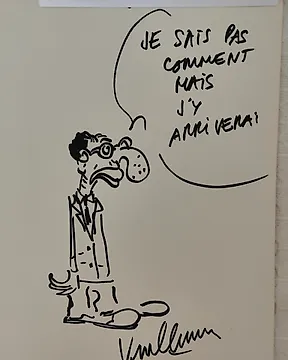 JE SAIS PAS
COMMENT
MAIS
J'Y
ARRIVERAI